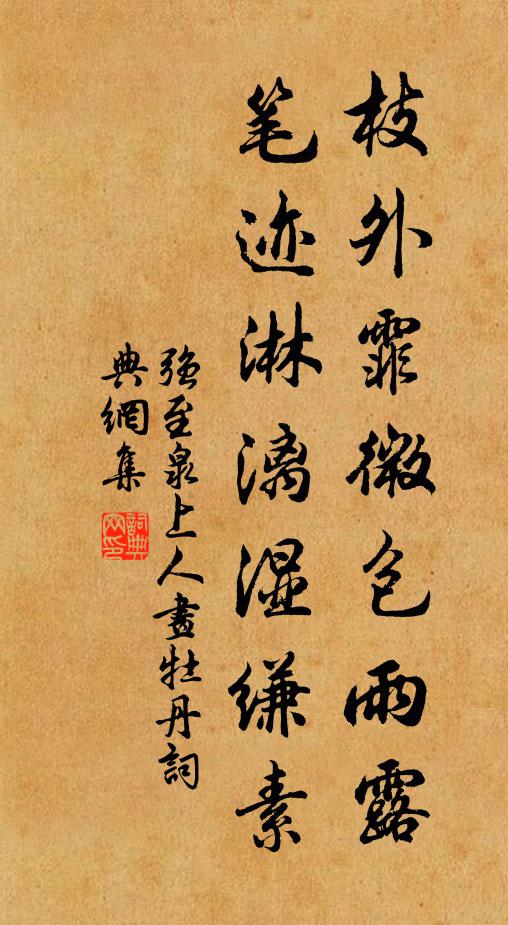 枝外霏微包雨露
笔迹淋漓湿缣素
强至泉上人畫牡丹詞
典網集
詞典
网印